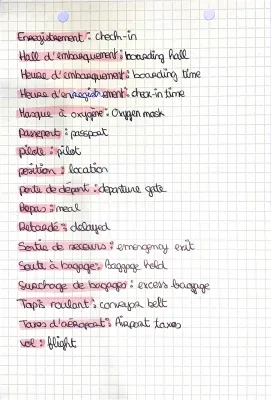 Enregistrement : check-in
Hall d'embarquement : boarding hall
Heure d'embarquement : boarding time
Heure d'enregistrement : check-in time
Masque à oxygène : Oxygen mask
Passeport : passport
pilote : pilot
position : location
porte de départ : departure gate
Repas : meal
Retardé : delayed
Sortie de secours : emergency exit
Soute à bagage : Baggage hold
Surcharge de bagages : excess baggage
Tapis roulant : conveyor belt
Taxes d'aéroport : Airport taxes
vol : flight